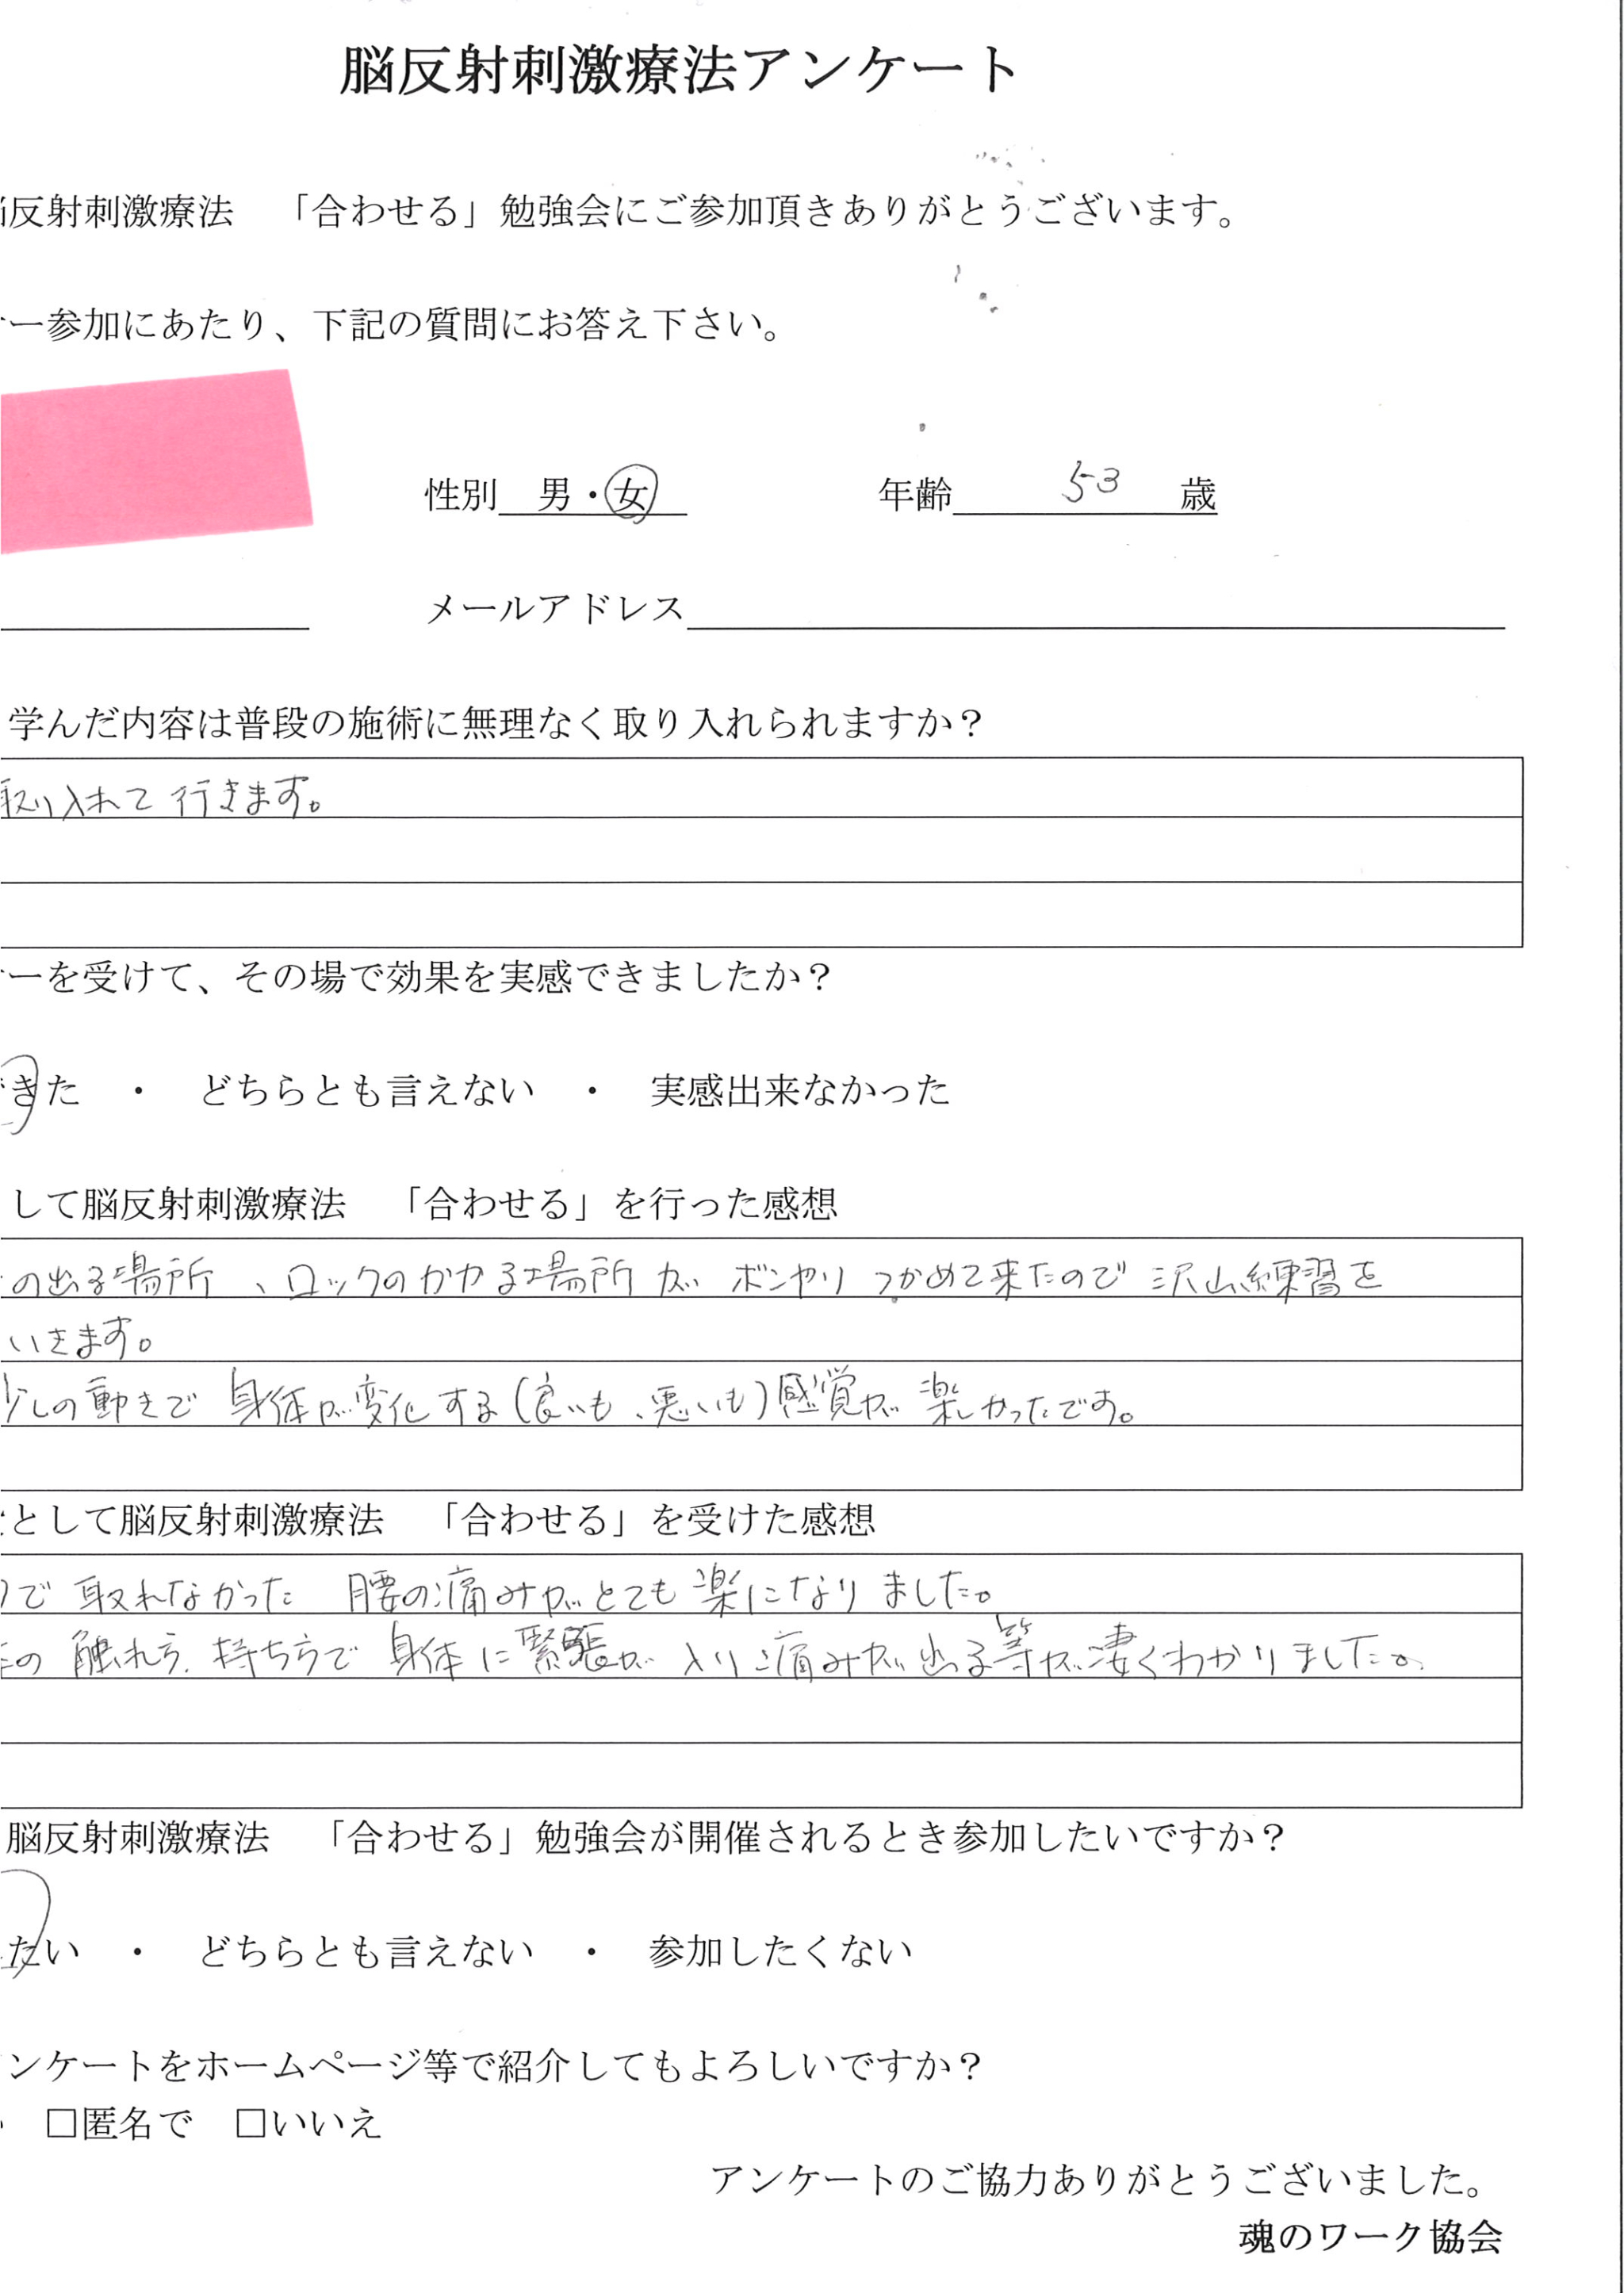 脳反射刺激療法アンケート
反射刺激療法 「合わせる」勉強会にご参加頂きありがとうございます。
ー参加にあたり、下記の質問にお答え下さい。
性別 男・女 年齢 53 歳
メールアドレス
学んだ内容は普段の施術に無理なく取り入れられますか？
取り入れて行きます。
ーを受けて、その場で効果を実感できましたか？
きた ・ どちらとも言えない ・ 実感出来なかった
して脳反射刺激療法 「合わせる」を行った感想
の出る場所、ロックのかかる場所が ボンヤリ つかめて来たので沢山練習を
いきます。
少しの動きで 身体が変化する(良いも、悪いも)感覚が 楽しかったです。
として脳反射刺激療法 「合わせる」を受けた感想
で 取れなかった 腰の痛みがとても楽になりました。
の 触れ方、持ち方で 身体に緊張が 入り痛みが出る等が凄くわかりました。
脳反射刺激療法 「合わせる」勉強会が開催されるとき参加したいですか？
たい ・ どちらとも言えない ・ 参加したくない
ンケートをホームページ等で紹介してもよろしいですか？
□匿名で □いいえ
アンケートのご協力ありがとうございました。
魂のワーク協会